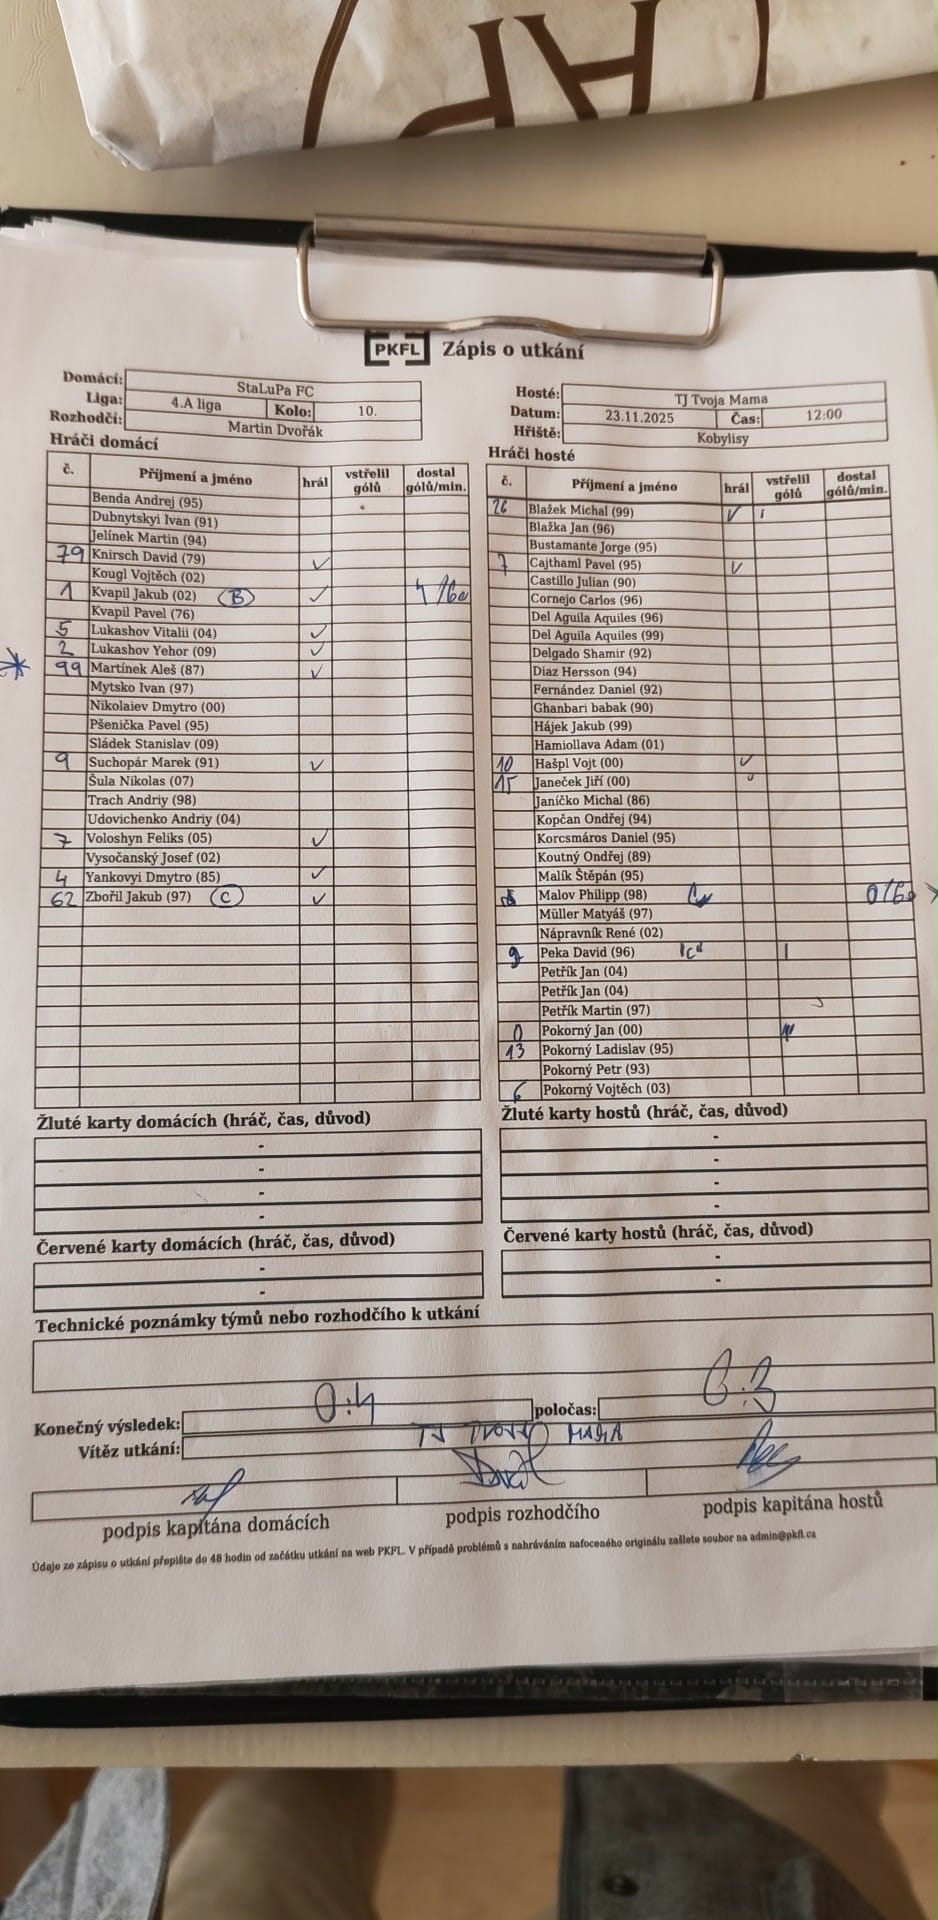 PKFL Zápis o utkání
Domácí: StaLuPa FC
Liga: 4.A liga Kolo: 10.
Rozhodčí: Martin Dvořák
Hosté: TJ Tvoja Mama
Datum: 23.11.2025 Čas: 12:00
Hřiště: Kobylisy
Hráči domácí
č. Příjmení a jméno hrál vstřelil gólů dostal gólů/min.
Benda Andrej (95)
Dubnytskyi Ivan (91)
Jelínek Martin (94)
79 Knirsch David (79) ✓
Kougl Vojtěch (02)
1 Kvapil Jakub (02) B ✓ 4/60
Kvapil Pavel (76)
5 Lukashov Vitalii (04) ✓
2 Lukashov Yehor (09) ✓
* 99 Martínek Aleš (87) ✓
Mytsko Ivan (97)
Nikolaiev Dmytro (00)
Pšenička Pavel (95)
Sládek Stanislav (09)
9 Suchopár Marek (91) ✓
Šula Nikolas (07)
Trach Andriy (98)
Udovichenko Andriy (04)
7 Voloshyn Feliks (05) ✓
Vysočanský Josef (02)
4 Yankovyi Dmytro (85) ✓
62 Zbořil Jakub (97) C ✓
Hráči hosté
č. Příjmení a jméno hrál vstřelil gólů dostal gólů/min.
26 Blažek Michal (99) ✓ I
Blažka Jan (96)
Bustamante Jorge (95)
7 Cajthaml Pavel (95) ✓
Castillo Julian (90)
Cornejo Carlos (96)
Del Aguila Aquiles (96)
Del Aguila Aquiles (99)
Delgado Shamir (92)
Diaz Hersson (94)
Fernández Daniel (92)
Ghanbari babak (90)
Hájek Jakub (99)
Hamiollava Adam (01)
10 Hašpl Vojt (00) ✓
15 Janeček Jiří (00) ✓
Janíčko Michal (86)
Kopčan Ondřej (94)
Korcsmáros Daniel (95)
Koutný Ondřej (89)
Malík Štěpán (95)
Malov Philipp (98) 0/60
Müller Matyáš (97)
Nápravník René (02)
9 Peka David (96) I
Petřík Jan (04)
Petřík Jan (04)
Petřík Martin (97)
0 Pokorný Jan (00)
13 Pokorný Ladislav (95)
Pokorný Petr (93)
6 Pokorný Vojtěch (03)
Žluté karty domácích (hráč, čas, důvod)
-
-
-
-
Žluté karty hostů (hráč, čas, důvod)
-
-
-
-
Červené karty domácích (hráč, čas, důvod)
-
-
Červené karty hostů (hráč, čas, důvod)
-
-
Technické poznámky týmů nebo rozhodčího k utkání
Konečný výsledek: 0:4 poločas: 0:3
Vítěz utkání: TJ TVOJE MAMA
podpis kapitána domácích podpis rozhodčího podpis kapitána hostů
Údaje ze zápisu o utkání přepište do 48 hodin od začátku utkání na web PKFL. V případě problémů s nahráváním nafoceného originálu zašlete soubor na admin@pkfl.cz